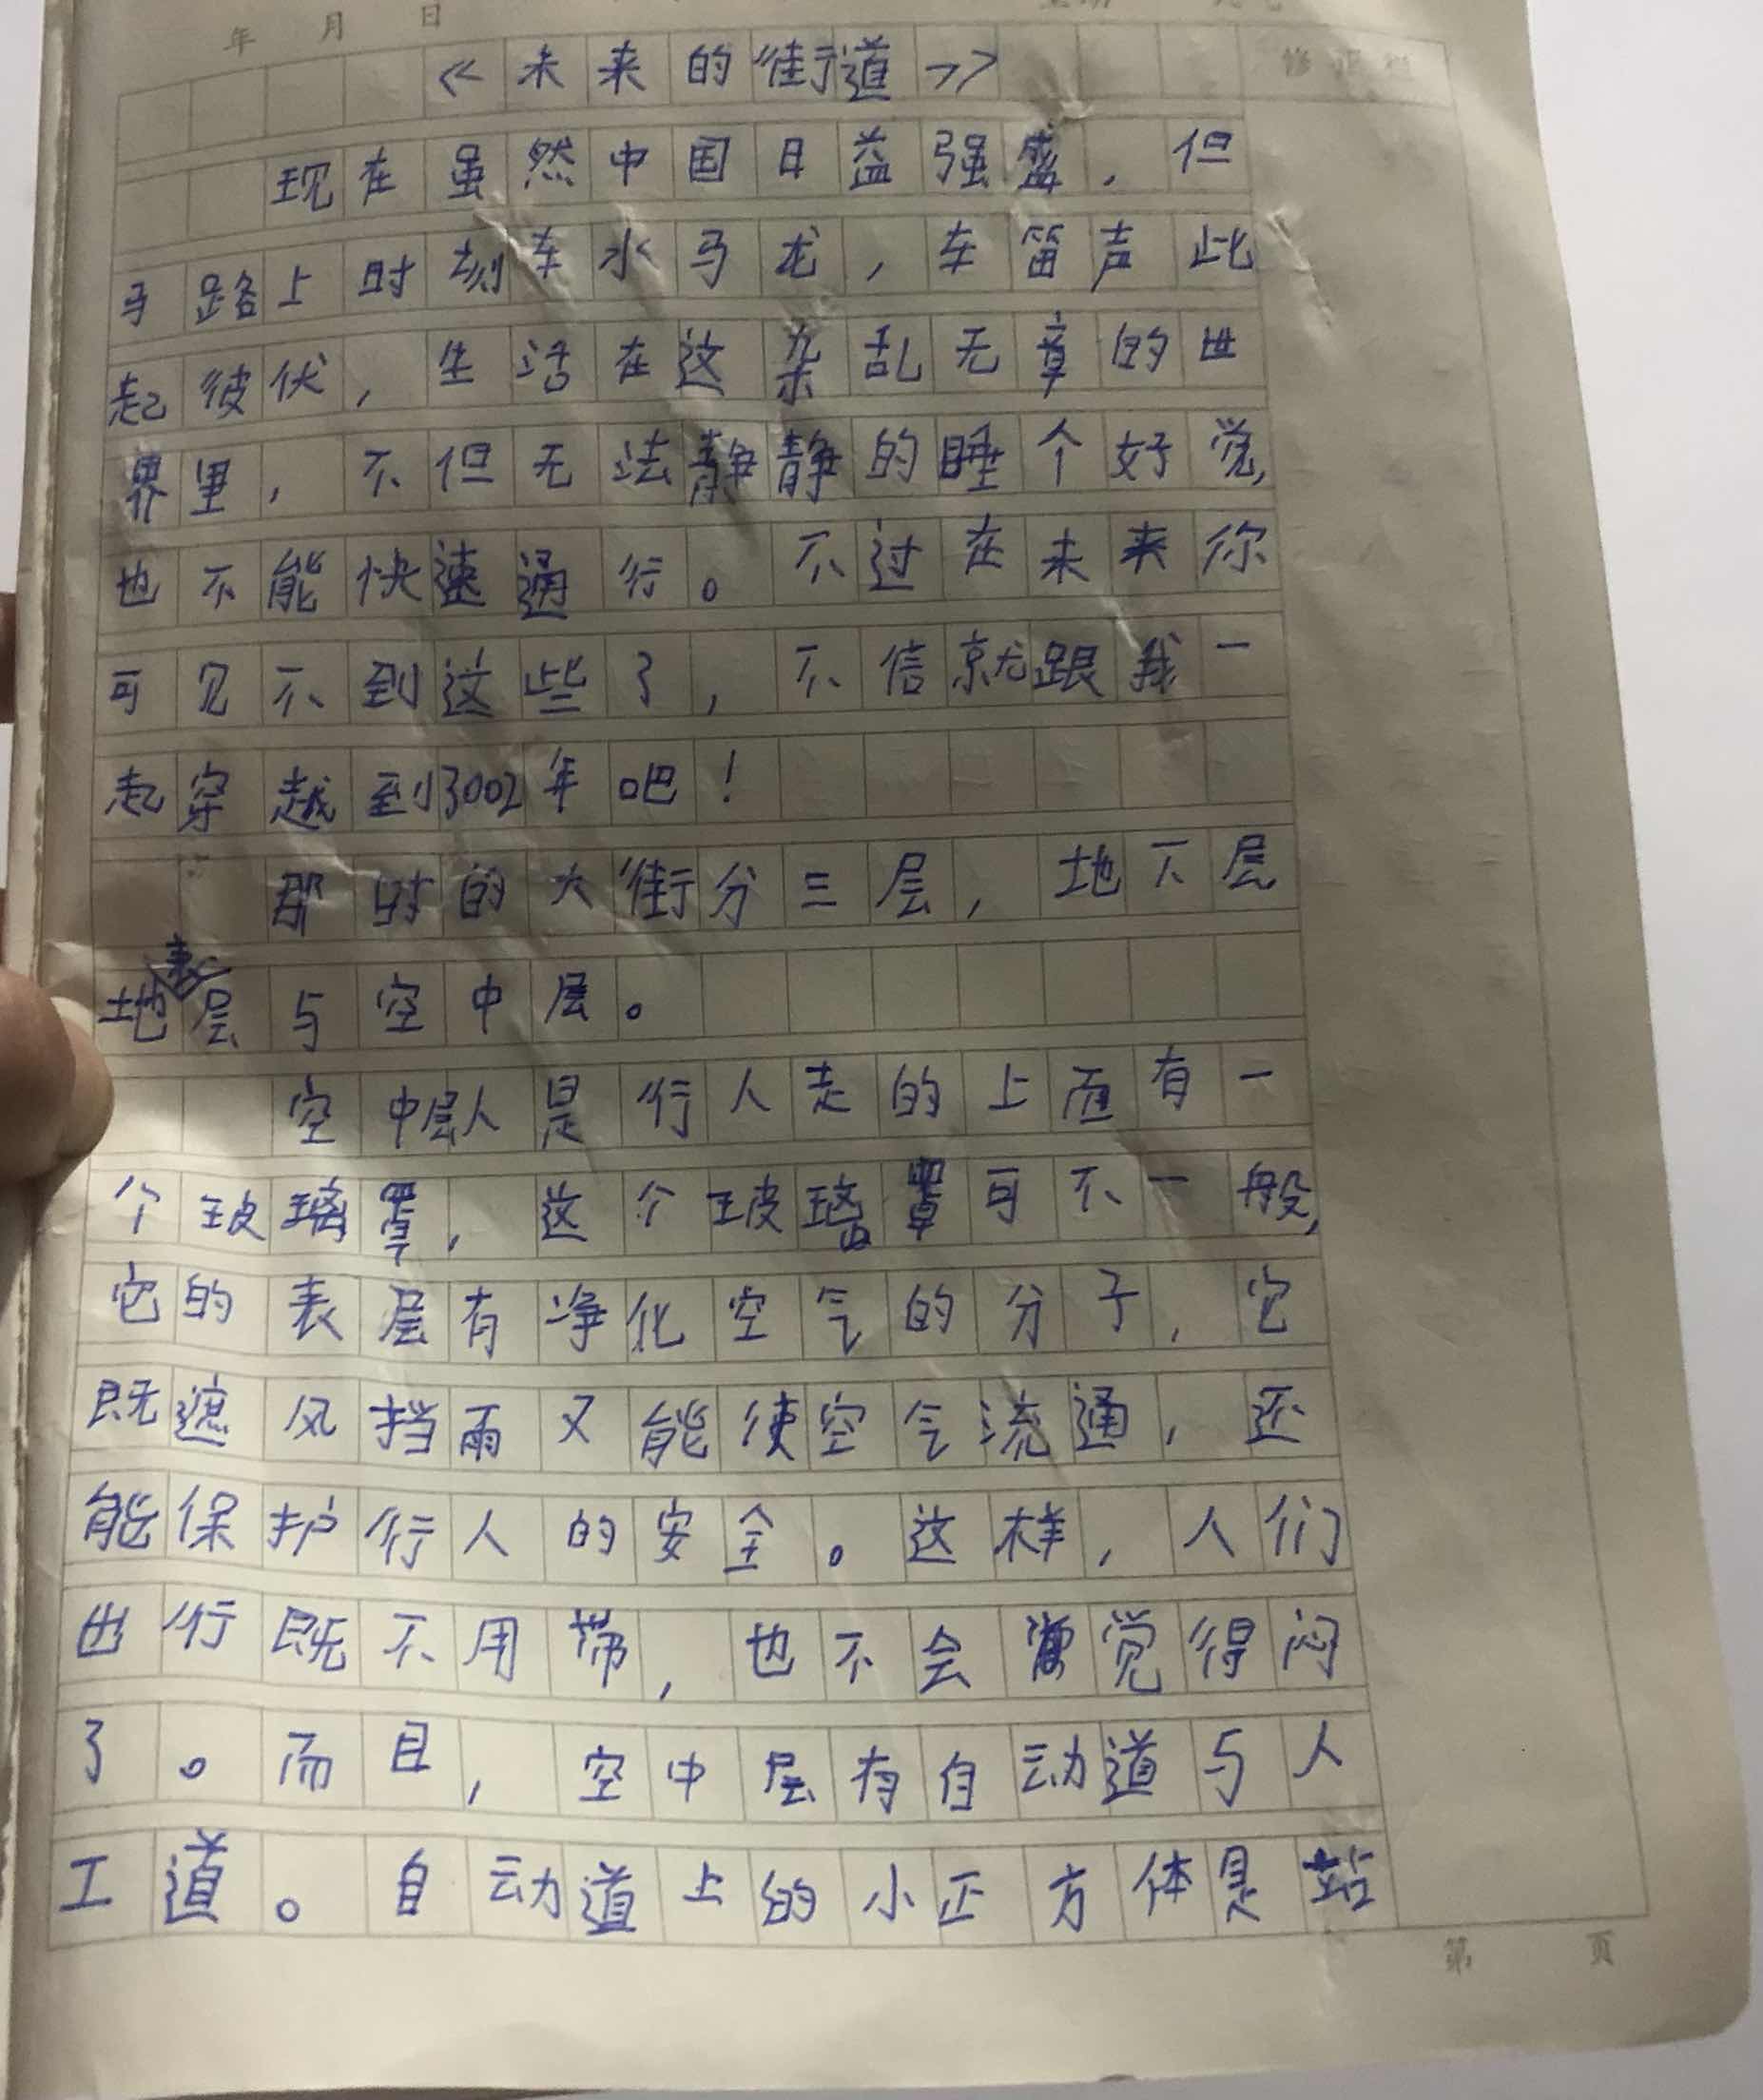 年 月 日
《未来的街道》
现在虽然中国日益强盛，但
马路上时刻车水马龙，车笛声此
起彼伏，生活在这杂乱无章的世
界里，不但无法静静的睡个好觉，
也不能快速通行。不过在未来你
可见不到这些了，不信就跟我一
起穿越到3002年吧！
那时的大街分三层，地下层
地表层与空中层。
空中层人是行人走的上面有一
个玻璃罩，这个玻璃罩可不一般，
它的表层有净化空气的分子，它
既遮风挡雨又能使空气流通，还
能保护行人的安全。这样，人们
出行既不用带，也不会觉得闷
了。而且，空中层有自动道与人
工道。自动道上的小正方体是站
第 页